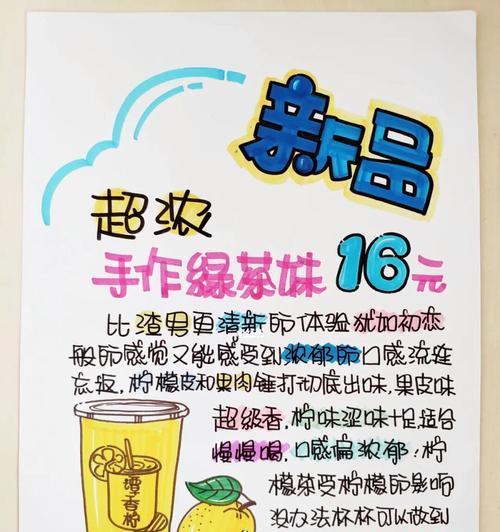 新品
超浓
手作绿茶妹 16元
比渣男更清新的体验犹如初恋
般的感觉又能感受到浓郁的口感流连
忘返,柠檬皮和果肉锤打彻底出味,果皮味
超级香,柠味涩味十足适合
慢慢喝,口感扁浓郁,柠
檬茶受柠檬的影响
没办法杯杯可以做到
香柠